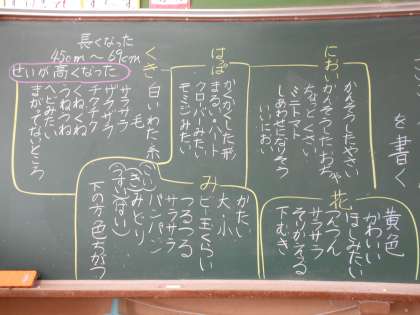 を書く
におい
かんそうしたやさい
かんそうしたおちゃ
ちょっとくさい
ミニトマト
しあわせになりそう
いいにおい
はっぱ
かくかくした形
まるい・ハート
クローバーみたい
モミジみたい
くき
長くなった
45cm〜69cm
せいが高くなった
白いわた糸
毛
サラサラ
ザラザラ
チクチク
くねくね
うねうね
へびみたい
まがってないところ
花
黄色
かわいい
ほしみたい
サラサラ
そりかえる
下むき
み
かたい
大・小
ビー玉くらい
つるつる
サラサラ
パンパン
みどり
下の方色ちがう